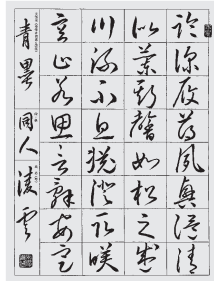 臨深履薄夙興溫清
似蘭斯馨如松之盛
川流不息淵澄取映
容止若思言辭安定
青墨同人凌云